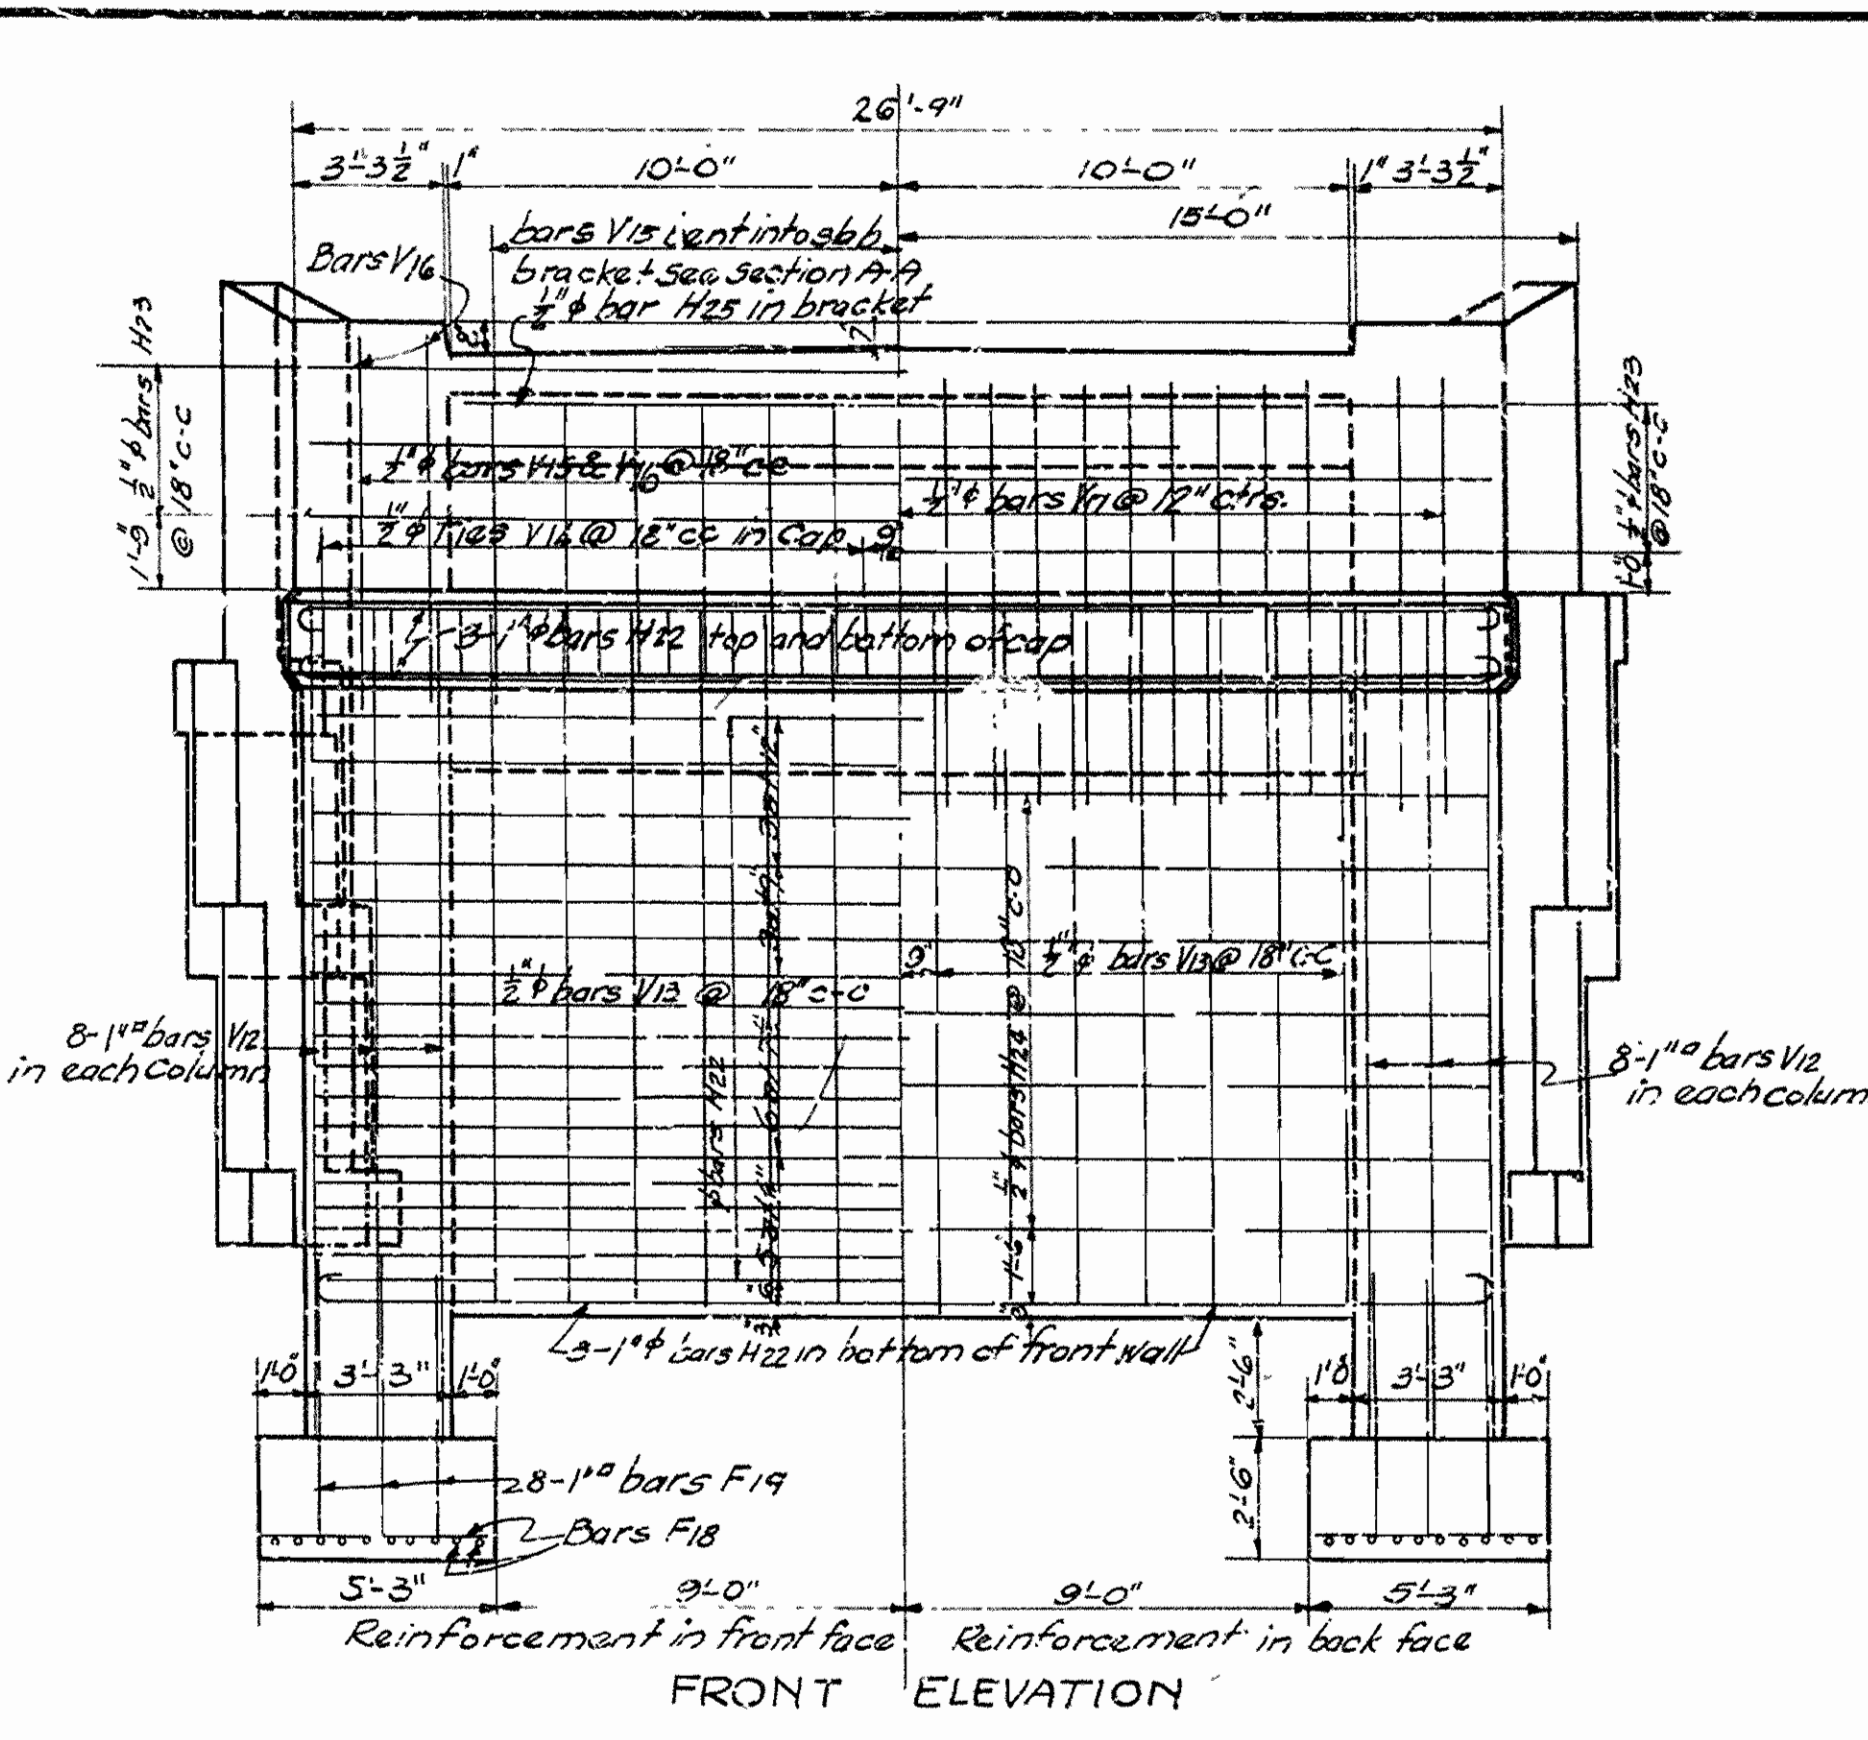 26'-9"
3'-3½" 1" 10'-0" 10'-0" 1" 3'-3½"
15'-0"
bars V15 bent into slab
bracket see section A-A
½"ϕ bar H25 in bracket
Bars V16
8"
7"
1'-9" ½"ϕ bars H23
@ 18" c-c
1'-0" ½"ϕ bars H23
@ 18" c-c
½"ϕ bars V15 & V16 @ 18" cc
½"ϕ bars V17 @ 12" ctrs.
½"ϕ Ties V16 @ 18" cc in Cap 9"
3-1"ϕ bars H22 top and bottom of cap
½"ϕ bars V13 @ 18" c-c
9" ½"ϕ bars V13 @ 18" c-c
ϕ bars H22
3"
½"ϕ bars H24 @ 18" c-c
1'-6"
8-1"□ bars V12
in each Column
8-1"□ bars V12
in each colum
3-1"ϕ bars H22 in bottom of front wall
1'-0" 3'-3" 1'-0"
1'-0" 3'-3" 1'-0"
2'-6"
2'-6"
8-1"□ bars F19
Bars F18
5'-3" 9'-0" 9'-0" 5'-3"
Reinforcement in front face Reinforcement in back face
FRONT ELEVATION